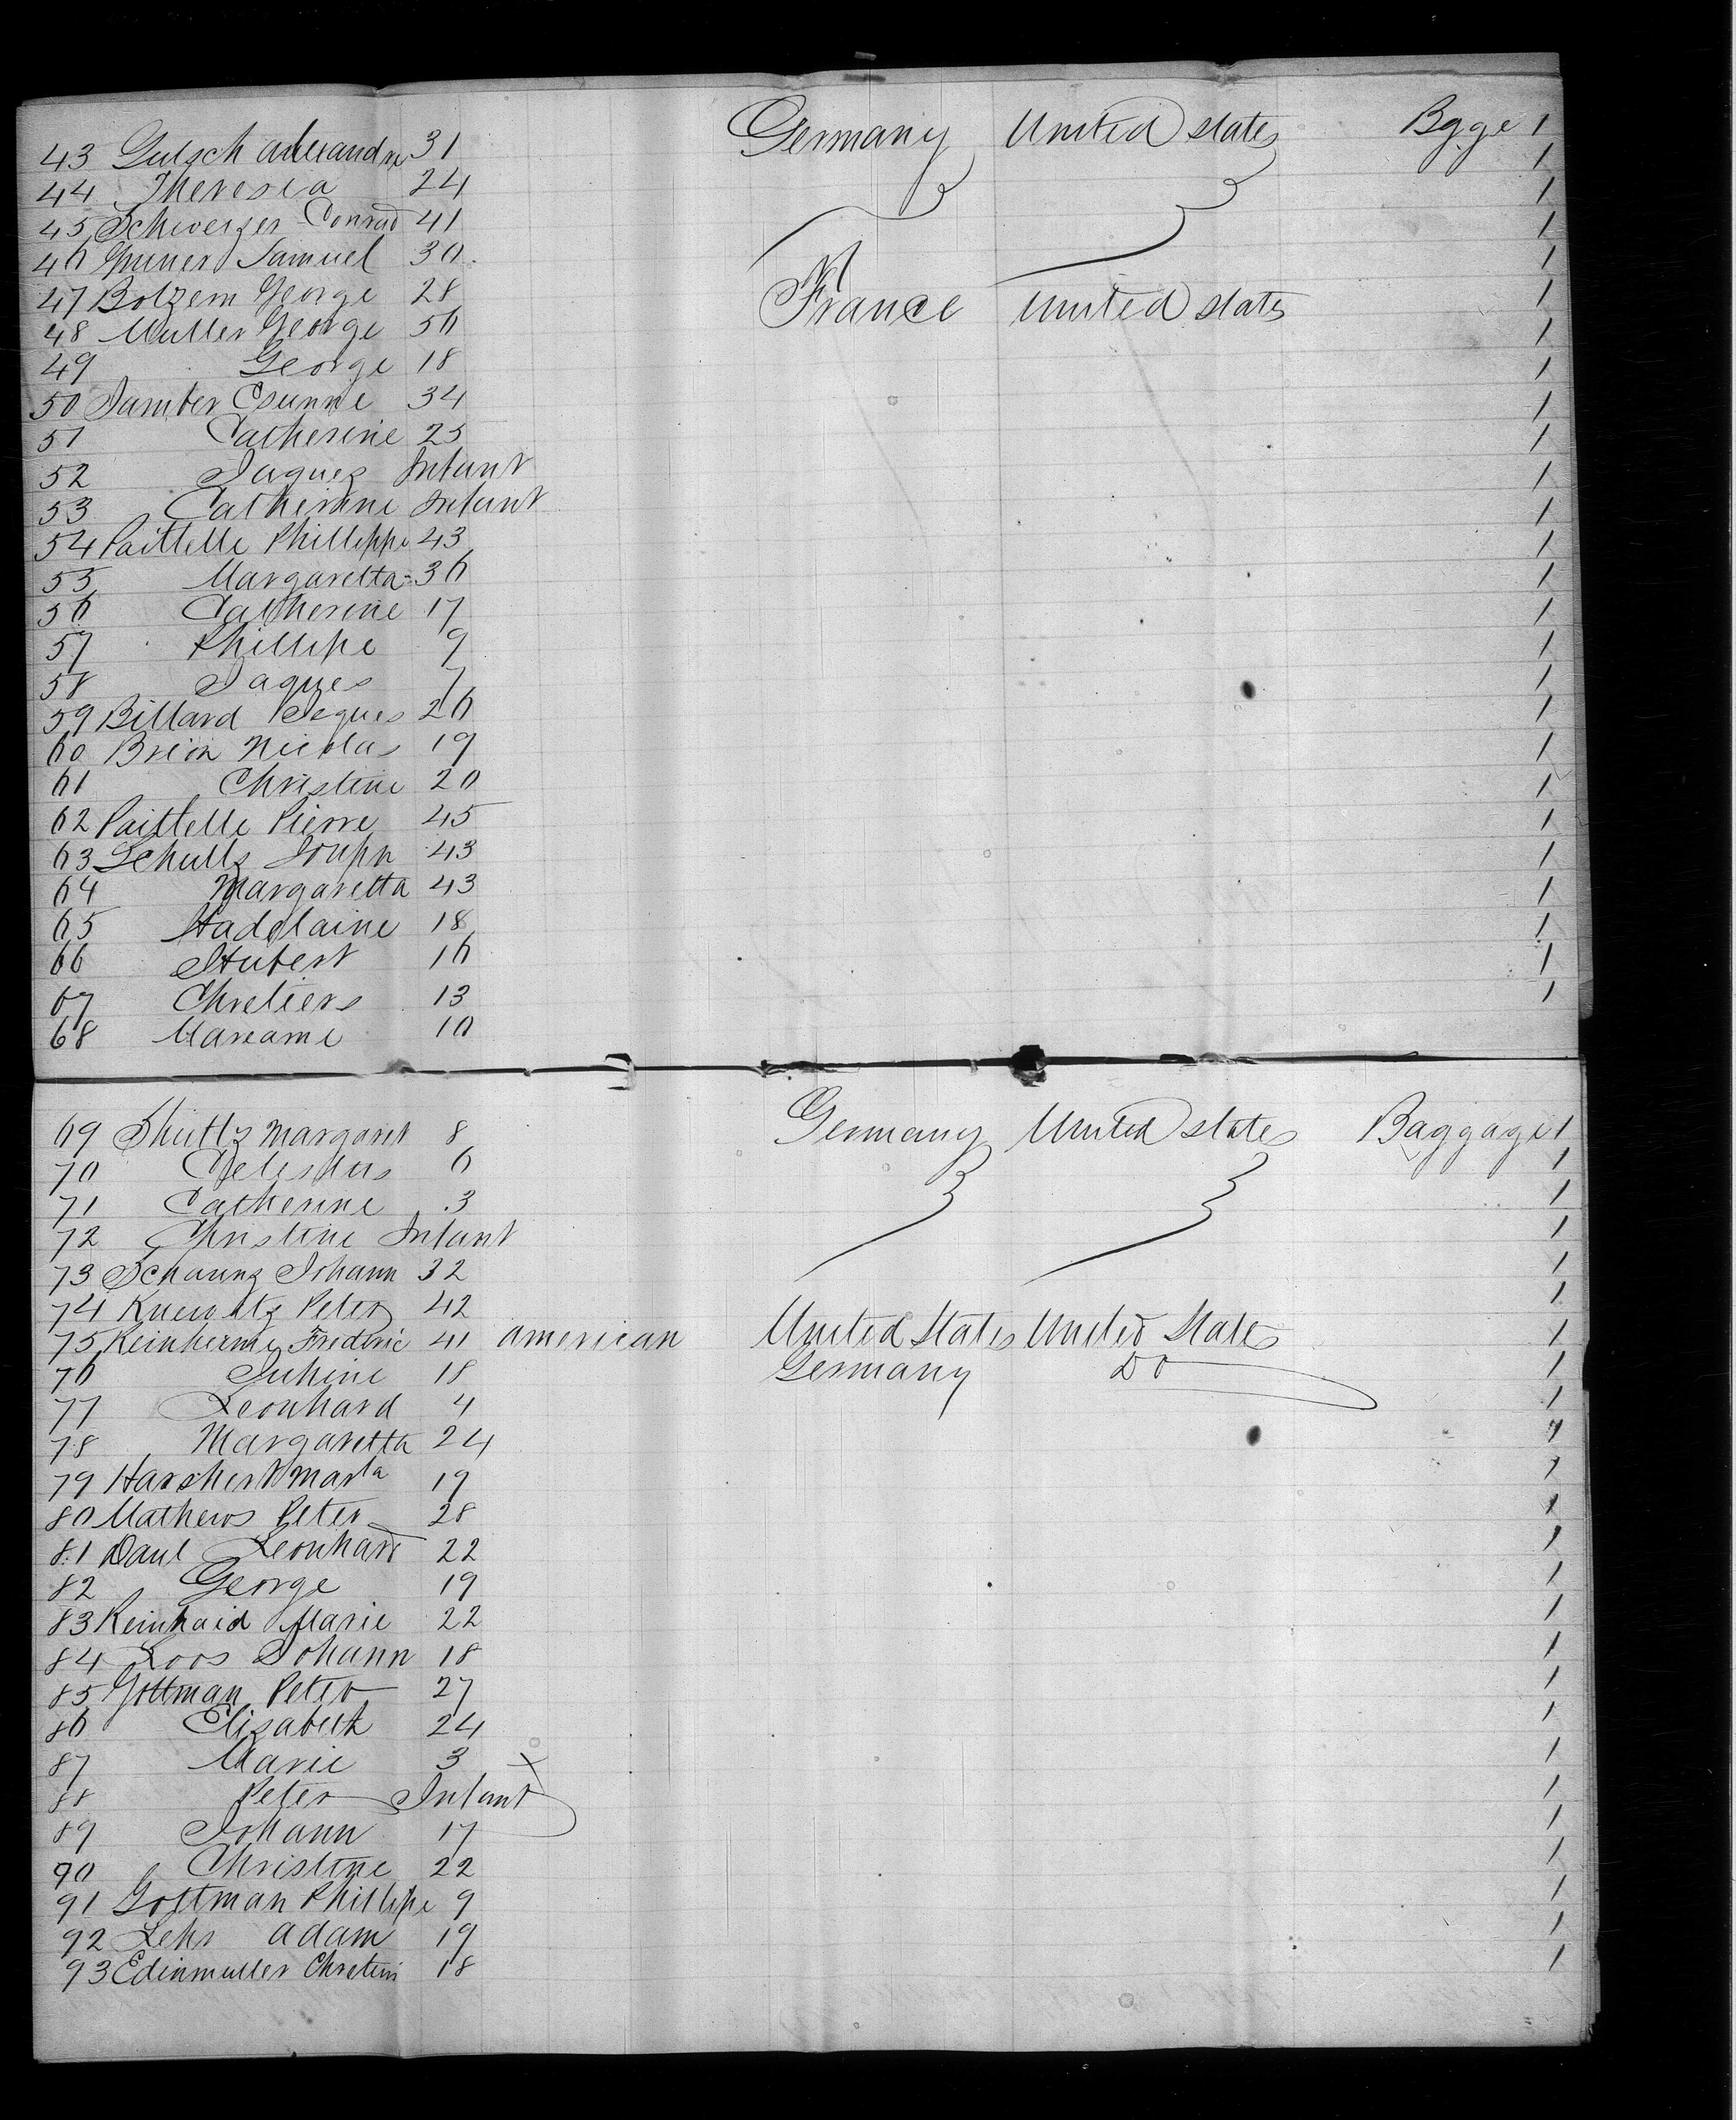 43 Gutsch Alexandre 31 Germany United States Bgge 1
44 Theresia 24 1
45 Schwerzer Conrad 41 1
46 Gruner Samuel 30 1
47 Bolzem George 28 France United States 1
48 Muller George 56 1
49 George 18 1
50 Jamber 34 1
51 Catherine 25 1
52 Jaques Infant 1
53 Catherine Infant 1
54 Paittelle Phillippe 43 1
55 Margaretta 36 1
56 Catherine 17 1
57 Phillipe 9 1
58 Jaques 7 1
59 Billard Jaques 26 1
60 Brion Nicolas 19 1
61 Christine 20 1
62 Paittelle Pierre 45 1
63 Schultz Joseph 43 1
64 Margaretta 43 1
65 Madelaine 18 1
66 Hubert 16 1
67 Chretiers 13 1
68 Mareame 10
69 Shultz Margaret 8 Germany United States Baggage 1
70 6 1
71 Catherine 3 1
72 Christine Infant 1
73 Schaunz Johann 32 1
74 Peter 42 1
75 Frederic 41 American United States United States 1
76 18 Germany Do 1
77 Leonhard 4 1
78 Margaretta 24 1
79 Harshert Marta 19 1
80 Mathews Peter 28 1
81 Daul Leonhard 22 1
82 George 19 1
83 Reinhaid Marie 22 1
84 Loos Johann 18 1
85 Gottman Peter 27 1
86 Elisabeth 24 1
87 Marie 3 1
88 Peter Infant 1
89 Johann 17 1
90 Christine 22 1
91 Gottman Phillipe 9 1
92 Lehr Adam 19 1
93 Edinmuller Chretien 18 1